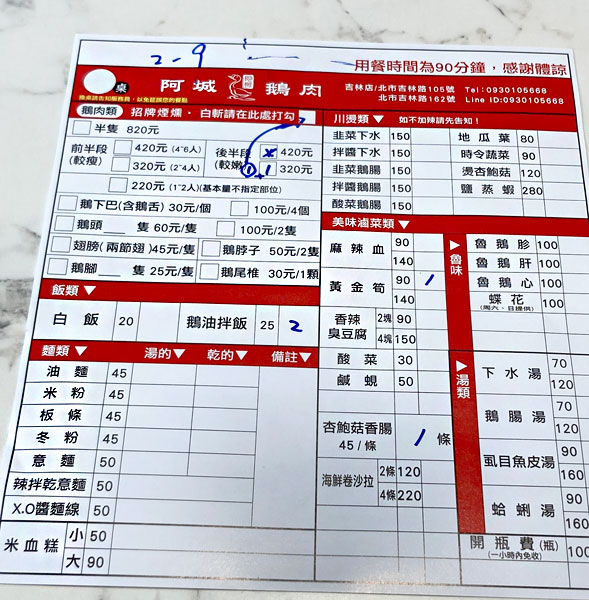 2-9
用餐時間為90分鐘，感謝體諒
桌
換桌請告知服務員，以免延誤您的餐點
阿城 阿城 鵝肉
吉林店/北市吉林路105號 Tel：0930105668
北市吉林路162號 Line ID:0930105668
鵝肉類 招牌煙燻、白斬請在此處打勾
半隻 820元
前半段(較瘦) 420元(4~6人)
320元(2~4人)
後半段(較嫩) x 420元
1 320元
220元(1~2人)(基本量不指定部位)
鵝下巴(含鵝舌) 30元/個 100元/4個
鵝頭 隻 60元/隻 100元/2隻
翅膀(兩節翅)45元/隻 鵝脖子 50元/2隻
鵝腳 隻 25元/隻 鵝尾椎 30元/1顆
飯類▼
白飯 20 鵝油拌飯 25 2
麵類▼ 湯的▼ 乾的▼ 備註▼
油麵 45
米粉 45
板條 45
冬粉 45
意麵 50
辣拌乾意麵 50
X.O醬麵線 50
米血糕 小 50
大 90
川燙類▼ 如不加辣請先告知！
韭菜下水 150 地瓜葉 80
拌醬下水 150 時令蔬菜 90
韭菜鵝腸 150 燙杏鮑菇 120
拌醬鵝腸 150 鹽蒸蝦 280
酸菜鵝腸 150
美味滷菜類▼
麻辣血 90
140
黃金筍 90 1
140
香辣臭豆腐 2塊 90
4塊 150
酸菜 30
鹹蜆 50
杏鮑菇香腸 45/條 1 條
海鮮卷沙拉 2條 120
4條 220
▶魯味
魯鵝胗 100
魯鵝肝 100
魯鵝心 100
蝶花(周六、日提供) 100
▶湯類
下水湯 70
120
鵝腸湯 70
120
虱目魚皮湯 90
160
蛤蜊湯 90
160
開瓶費(瓶) 100
(一小時內免收)